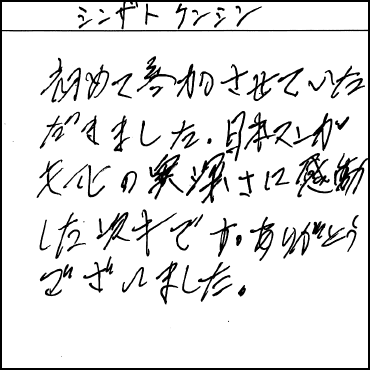 シンザト ケンシン
初めて参加させていた
だきました。日本マンガ
文化の奥深さに感動
した次才です。ありがとう
ございました。